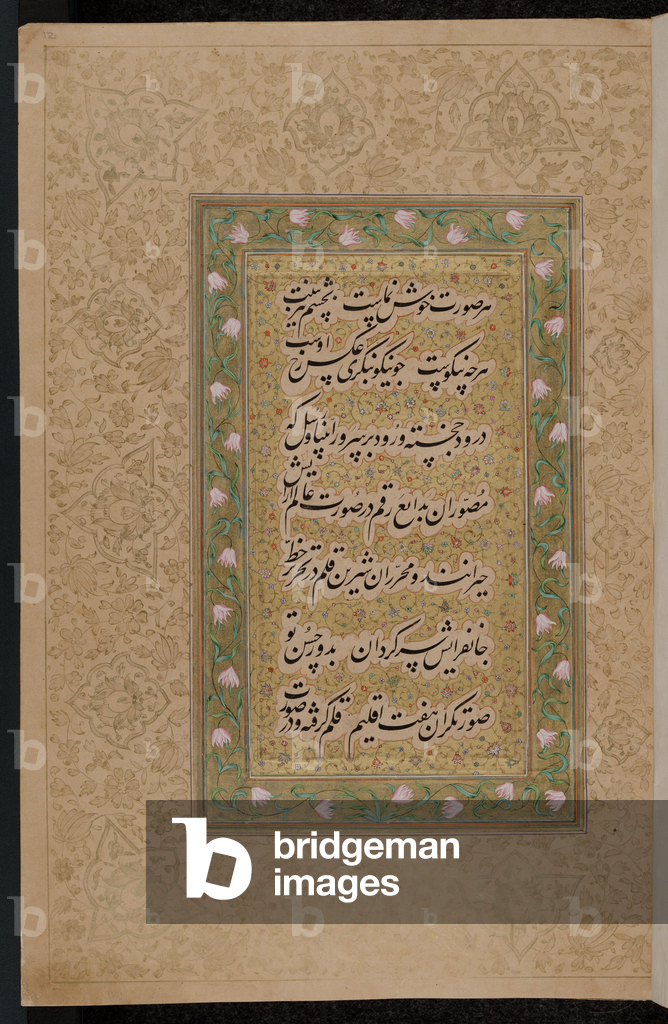 12
هر صورت خوش نماست بچشم هر بیننده
هر چه نیکوست چو نیکو نگری عکس رخ اوست
درود خجسته ورود بر سرور انبیا و رسل که
مصوران بدایع رقم در صورت عالم آرایش
حیرانند و محرران شیرین قلم در تحریر خط
جانفزایش سرگردان بدور حسن تو
صورتگران هفت اقلیم قلم گرفته و در صورت
bridgeman
images